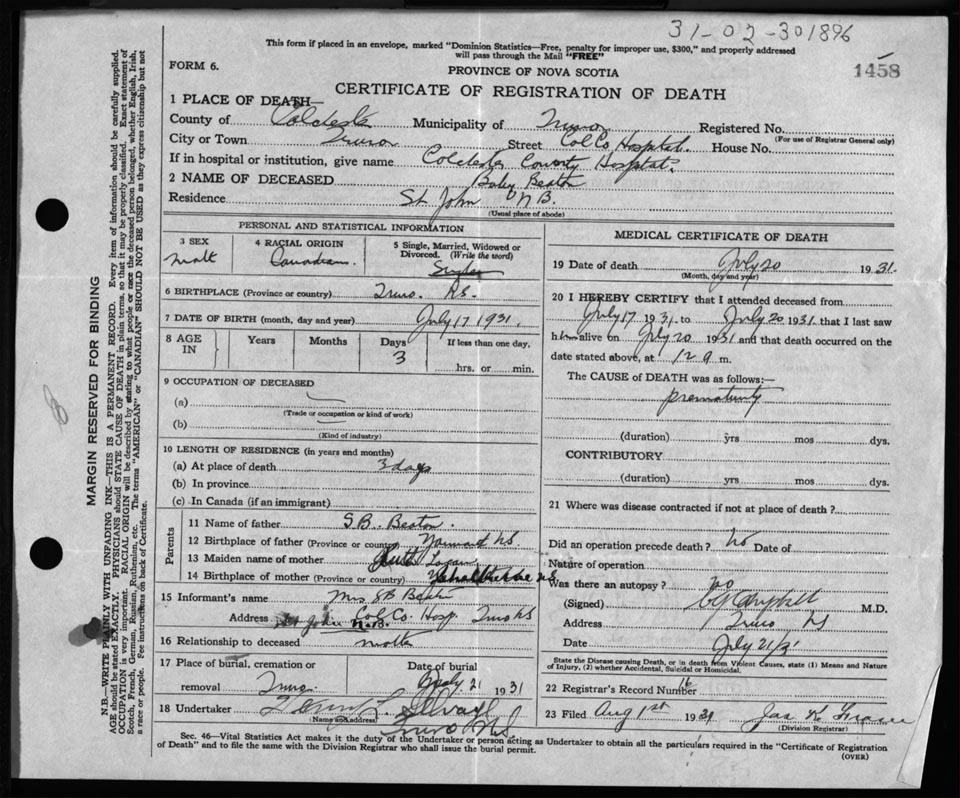 31-02-301896
This form if placed in an envelope, marked "Dominion Statistics—Free, penalty for improper use, $300," and properly addressed
will pass through the Mail "FREE"
1458
FORM 6.
PROVINCE OF NOVA SCOTIA
CERTIFICATE OF REGISTRATION OF DEATH
1 PLACE OF DEATH—
County of Colchester Municipality of Truro Registered No.
(For use of Registrar General only)
City or Town Truro Street Col Co, Hospital. House No.
If in hospital or institution, give name Colchester County Hospital
2 NAME OF DECEASED Baby Beaton
Residence St John N B.
(Usual place of abode)
PERSONAL AND STATISTICAL INFORMATION
3 SEX
Male
4 RACIAL ORIGIN
Canadian
5 Single, Married, Widowed or
Divorced. (Write the word)
Single
6 BIRTHPLACE (Province or country) Truro. N.S.
7 DATE OF BIRTH (month, day and year) July 17 1931.
8 AGE
IN
Years Months Days If less than one day,
3
hrs. or min.
9 OCCUPATION OF DECEASED
(a)
(Trade or occupation or kind of work)
(b)
(Kind of industry)
10 LENGTH OF RESIDENCE (in years and months)
(a) At place of death 3 days
(b) In province
(c) In Canada (if an immigrant)
Parents
11 Name of father S. B. Beaton.
12 Birthplace of father (Province or country) N.S.
13 Maiden name of mother Ruth Logan
14 Birthplace of mother (Province or country) N.S.
15 Informant's name Mrs S B Beaton
Address Col. Co. Hosp. Truro N S
St John N.B.
16 Relationship to deceased mother
17 Place of burial, cremation or
removal Truro
Date of burial
July 21 1931
18 Undertaker
(Name and address)
Truro N.S.
MEDICAL CERTIFICATE OF DEATH
19 Date of death July 20 1931.
(Month, day and year)
20 I HEREBY CERTIFY that I attended deceased from
July 17 1931 to July 20 1931 that I last saw
him alive on July 20 1931 and that death occurred on the
date stated above, at 12 a m.
The CAUSE of DEATH was as follows:—
prematurity
(duration) yrs mos dys.
CONTRIBUTORY
(duration) yrs mos dys.
21 Where was disease contracted if not at place of death?
Did an operation precede death? no Date of
Nature of operation
Was there an autopsy? no
(Signed) Campbell M.D.
Address Truro N S
Date July 21/31
State the Disease causing Death, or in death from Violent Causes, state (1) Means and Nature
of Injury, (2) whether Accidental, Suicidal or Homicidal.
22 Registrar's Record Number 16
23 Filed Aug 1st 1931 Jas K Fraser
(Division Registrar)
Sec. 46—Vital Statistics Act makes it the duty of the Undertaker or person acting as Undertaker to obtain all the particulars required in the "Certificate of Registration
of Death" and to file the same with the Division Registrar who shall issue the burial permit.
(OVER)
MARGIN RESERVED FOR BINDING
N.B.—WRITE PLAINLY WITH UNFADING INK—THIS IS A PERMANENT RECORD. Every item of information should be carefully supplied.
AGE should be stated EXACTLY. PHYSICIANS should STATE CAUSE OF DEATH in plain terms, so that it may be properly classified. Exact statement of
OCCUPATION is very important. RACIAL ORIGIN will be described by stating to what people or race the deceased person belonged, whether English, Irish,
Scotch, French, German, Russian, Ruthenian, etc. The terms "AMERICAN" or "CANADIAN" SHOULD NOT BE USED as they express citizenship but not
a race or people. See instructions on back of Certificate.